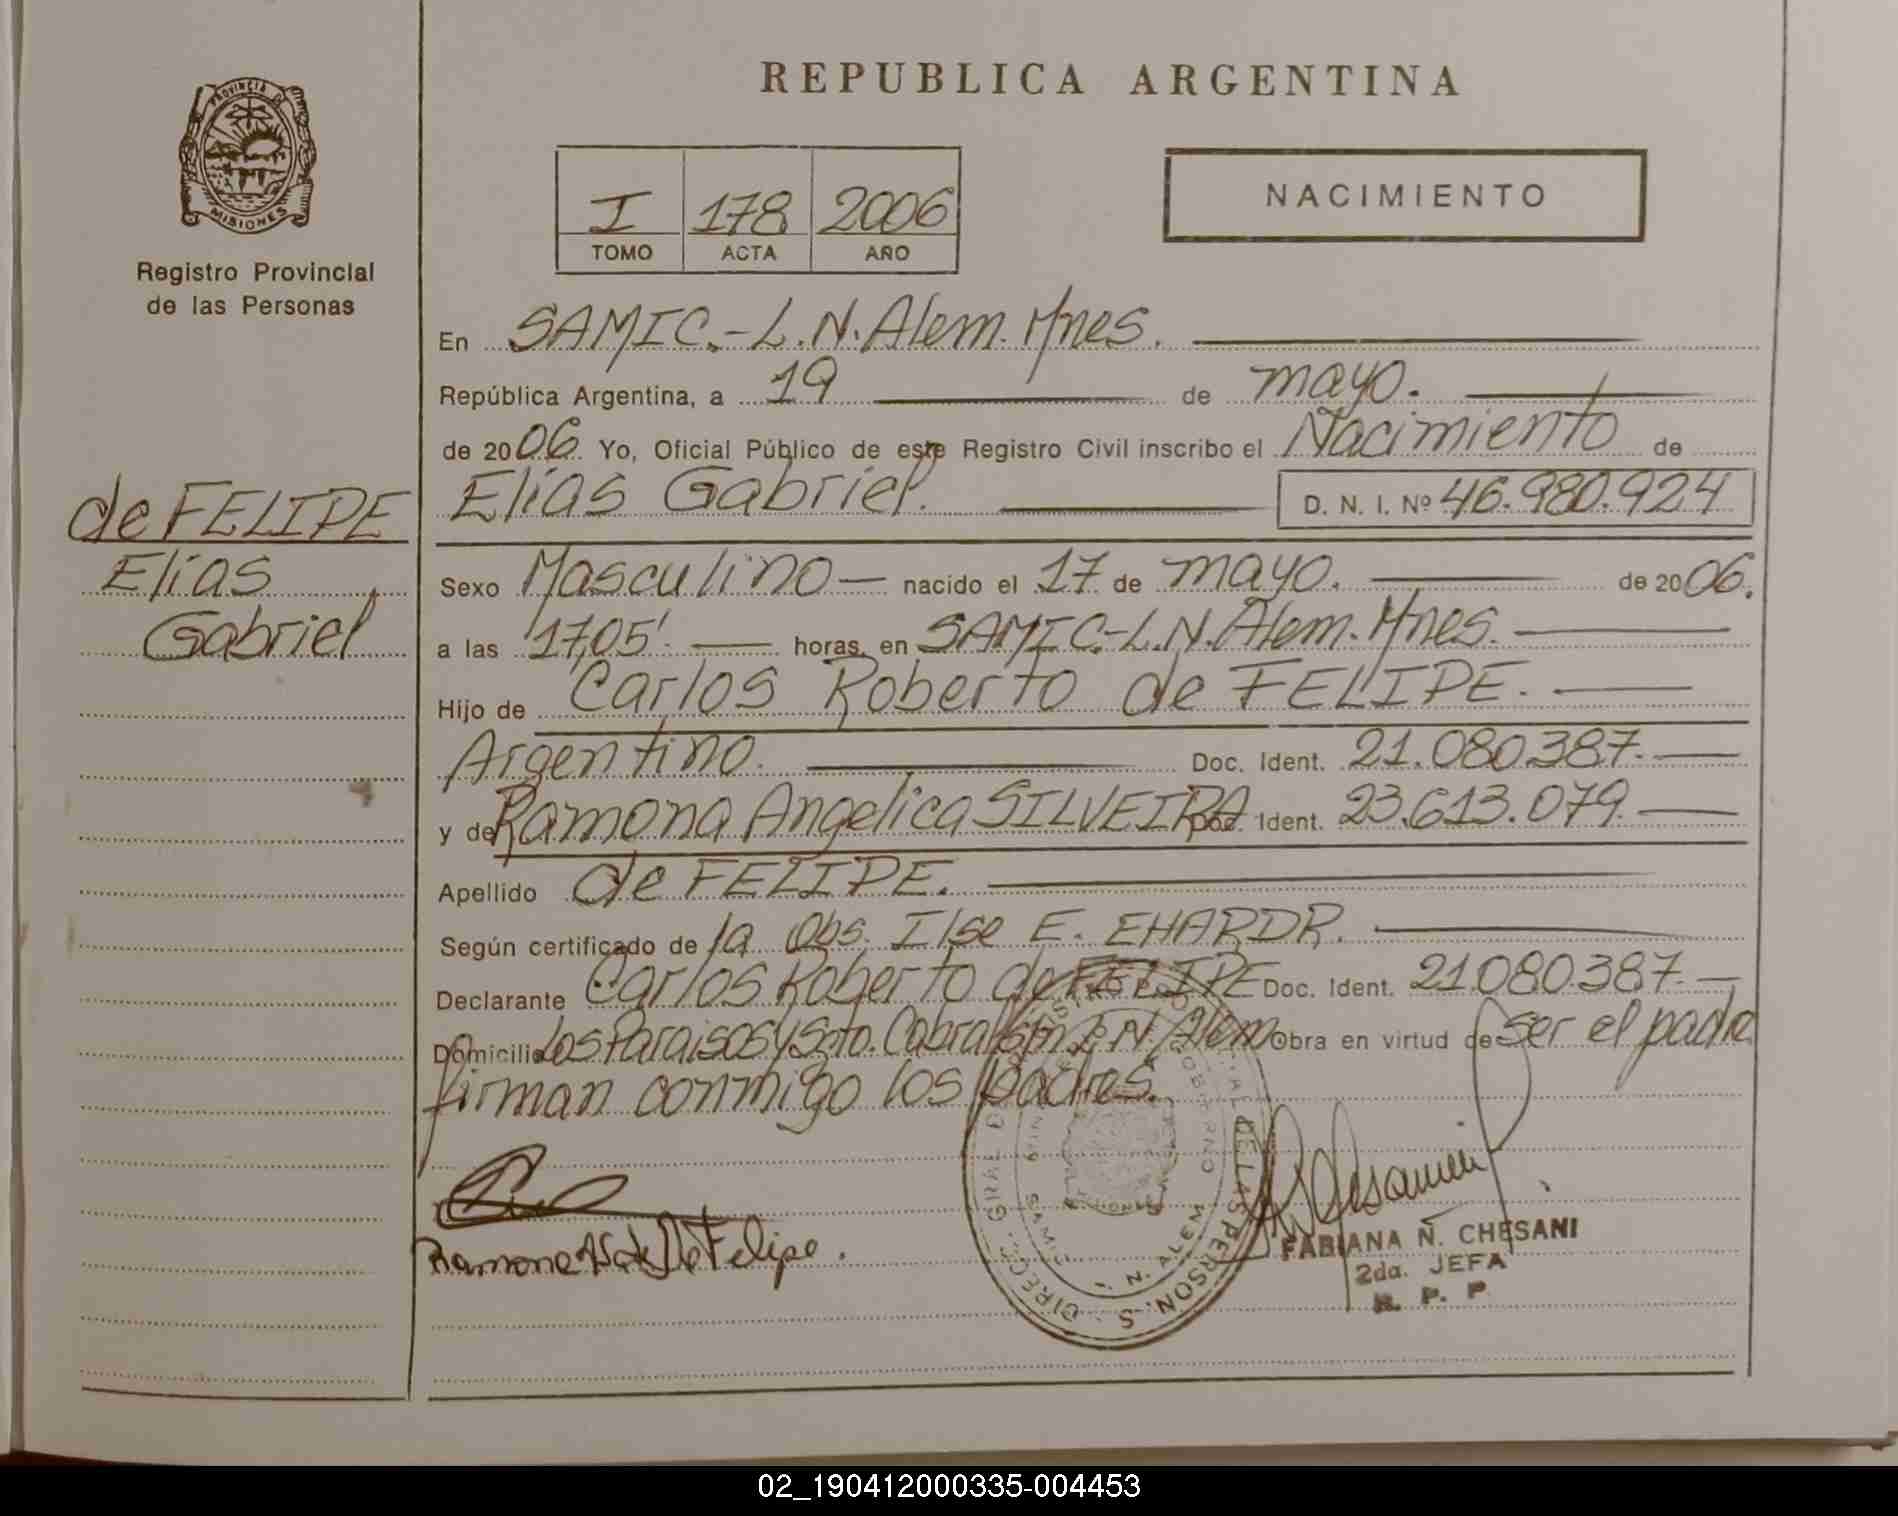 PROVINCIA DE
MISIONES
Registro Provincial
de las Personas
de FELIPE
Elías
Gabriel
REPUBLICA ARGENTINA
I 178 2006
TOMO ACTA AÑO
NACIMIENTO
En SAMIC.-L.N.Alem.Mnes.
República Argentina, a 19 de mayo.
de 2006. Yo, Oficial Público de este Registro Civil inscribo el Nacimiento de
Elías Gabriel. D. N. I. Nº 46.980.924
Sexo Masculino — nacido el 17 de mayo. de 2006.
a las 17,05'. horas, en SAMIC-L.N.Alem.Mnes.
Hijo de Carlos Roberto de FELIPE.
Argentino. Doc. Ident. 21.080.387.—
y de Ramona Angelica SILVEIRA Doc. Ident. 23.613.079.—
Apellido de FELIPE.
Según certificado de la Obs. Ilse E. EHARDR.
Declarante Carlos Roberto de FELIPE Doc. Ident. 21.080.387.—
Domicilio Los Paraisos y Sgto. Cabral L. N. Alem Obra en virtud de ser el padre
firman conmigo los padres.
Ramona de De Felipe.
DIREC. GRAL. DE LAS PERSONAS
L. N. ALEM
FABIANA N. CHESANI
2da. JEFA
R. P. P
02_190412000335-004453